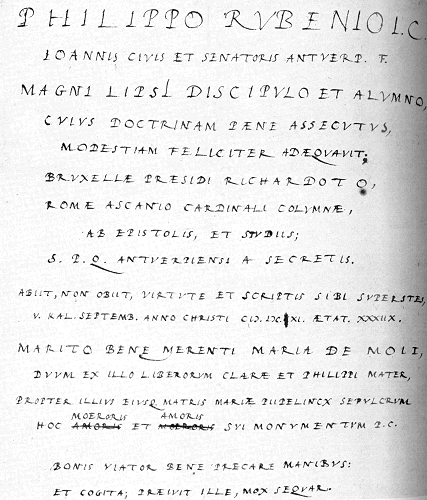 PHILIPPO RVBENIO I.C.
IOANNIS CIVIS ET SENATORIS ANTVERP. F.
MAGNI LIPSI DISCIPVLO ET ALVMNO,
CVIVS DOCTRINAM PÆNE ASSECVTVS,
MODESTIAM FELICITER ADÆQVAVIT;
BRVXELLÆ PRÆSIDI RICHARDOTO,
ROMÆ ASCANIO CARDINALI COLVMNÆ,
AB EPISTOLIS, ET STVDIIS;
S. P. Q. ANTVERPIENSI A SECRETIS.
ABIIT, NON OBIIT, VIRTVTE ET SCRIPTIS SIBI SVPERSTES,
V. KAL. SEPTEMB. ANNO CHRISTI CIↃ. IↃC. XI. ÆTAT. XXXIIX.
MARITO BENE MERENTI MARIA DE MOII,
DVVM EX ILLO LIBERORVM CLARÆ ET PHILIPPI MATER,
PROPTER ILLIVS EIVSQ. MATRIS MARIÆ PIIPELINCX SEPVLCRVM
MOERORIS AMORIS
HOC AMORIS ET MOERORIS SVI MONVMENTVM P.C.
BONIS VIATOR BENE PRECARE MANIBVS:
ET COGITA; PRÆIVIT ILLE, MOX SEQVAR.